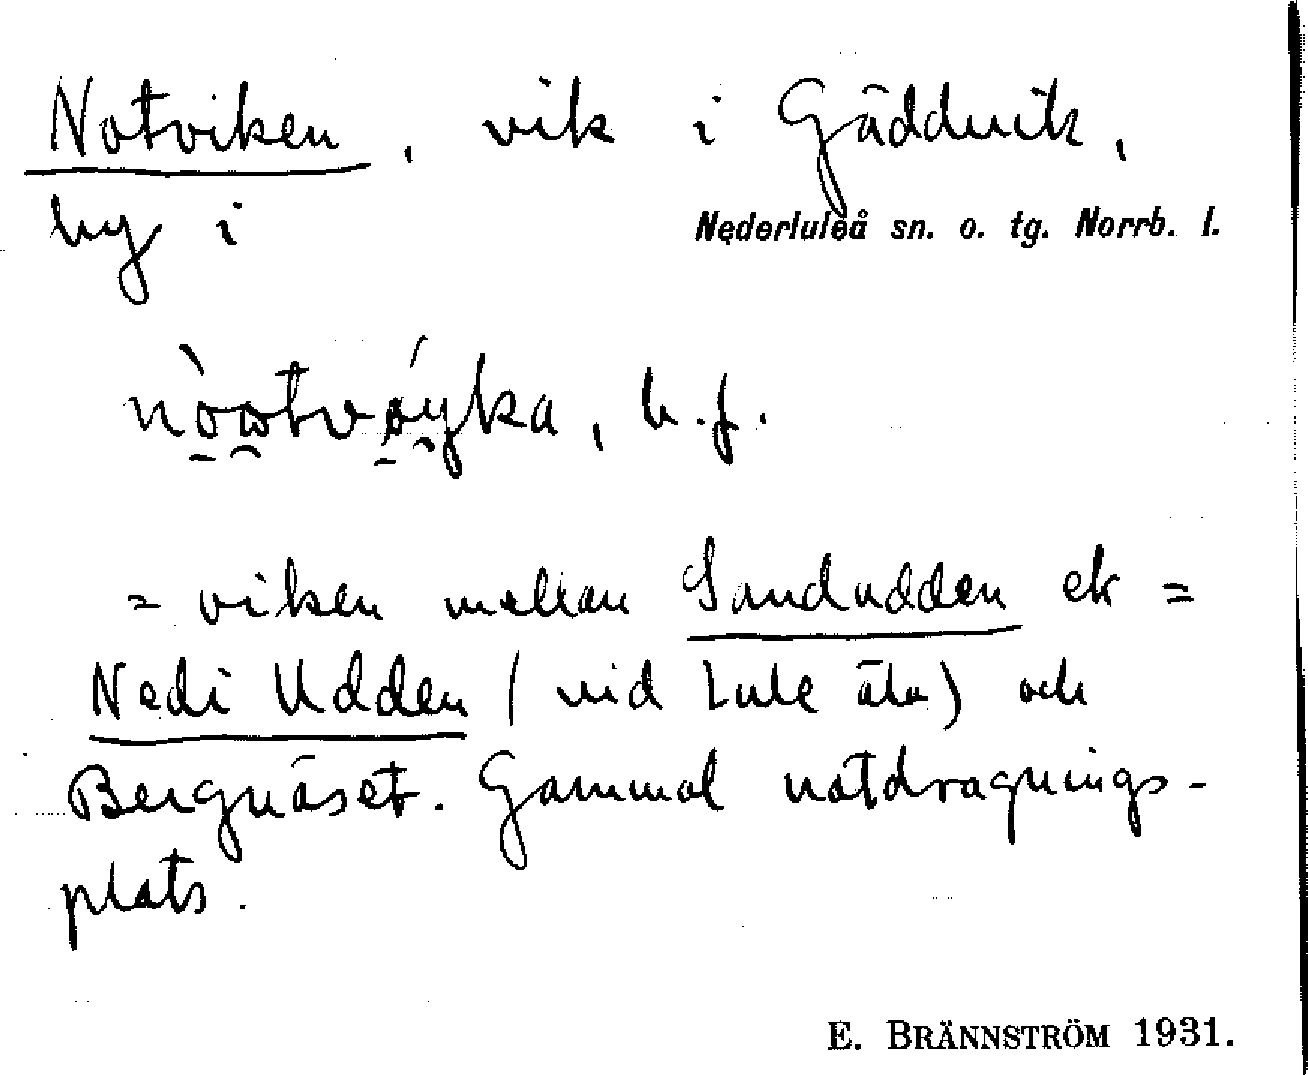 Notviken, vik i Gäddvik,
by i Nederluleå sn. o. tg. Norrb. l.
nò̱o̯tvó̱y̯ka, b.f.
= viken mellan Sandudden el =
Nedi Udden (vid Lule älv) och
Bergnäset. Gammal notdragnings-
plats.
E. BRÄNNSTRÖM 1931.